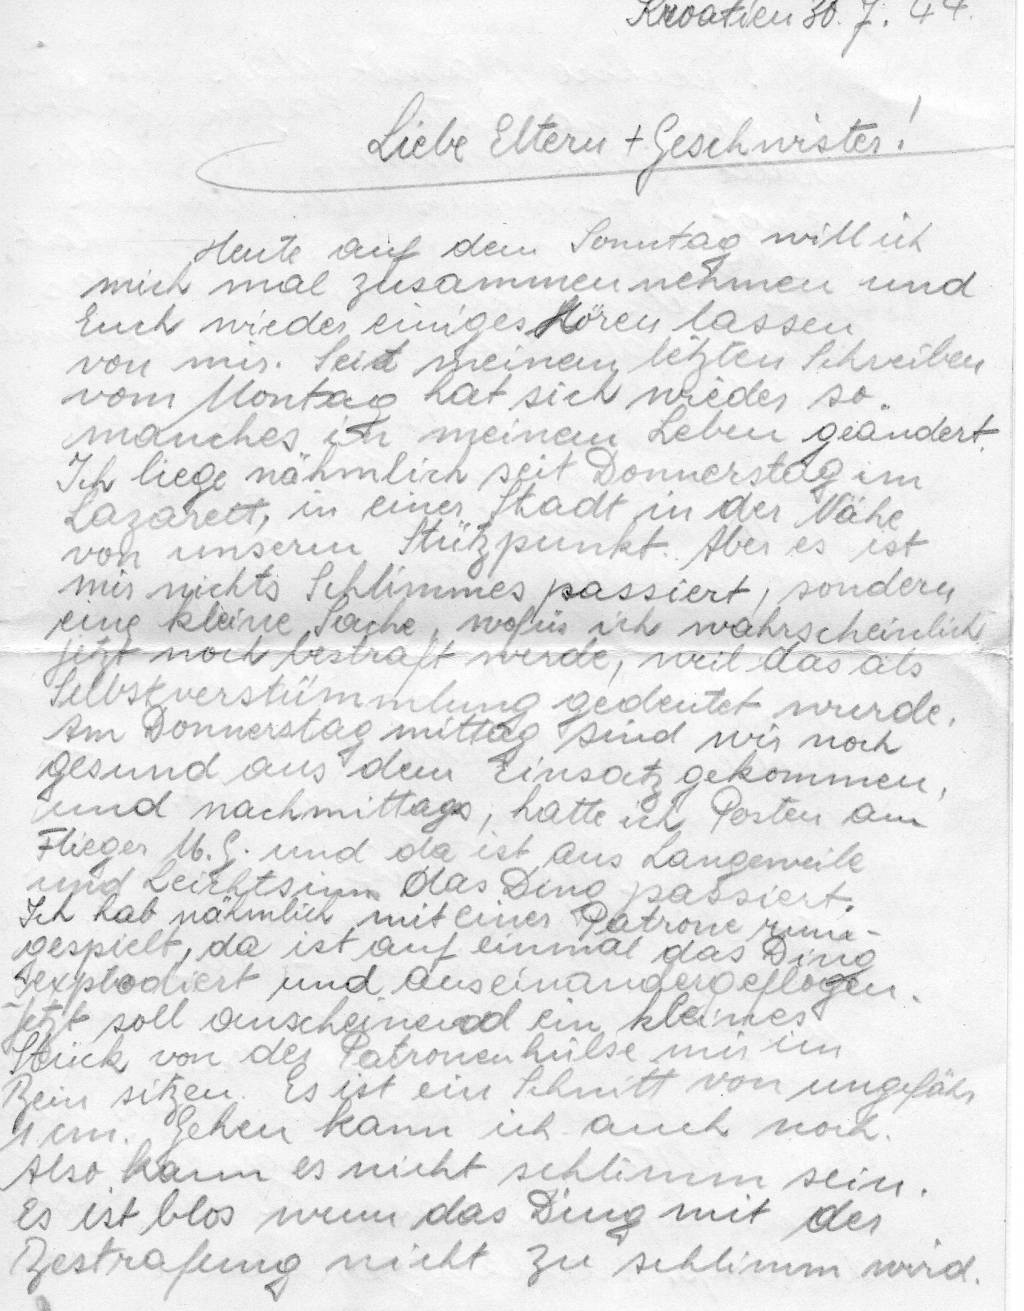 Kroatien 30. 7. 44.
Liebe Eltern + Geschwister!
Heute auf den Sonntag will ich
mich mal zusammennehmen und
Euch wieder einiges Hören lassen
von mir. Seit meinem letzten Schreiben
vom Montag hat sich wieder so
manches in meinem Leben geändert.
Ich liege nähmlich seit Donnerstag im
Lazarett, in einer Stadt in der Nähe
von unserm Stützpunkt. Aber es ist
mir nichts Schlimmes passiert, sondern
eine kleine Sache, wofür ich wahrscheinlich
jetzt noch bestraft werde, weil das als
Selbstverstümmlung gedeutet wurde.
Am Donnerstag mittag sind wir noch
gesund aus dem Einsatz gekommen,
und nachmittags, hatte ich Posten am
Flieger M.G. und da ist aus Langeweile
und Leichtsinn das Ding passiert.
Ich hab nähmlich mit einer Patrone rum-
gespielt, da ist auf einmal das Ding
explodiert und auseinandergeflogen.
Jetzt soll anscheinend ein kleines
Stück von der Patronenhülse mir im
Bein sitzen. Es ist ein Schnitt von ungefähr
1 cm. Gehen kann ich auch noch.
Also kann es nicht schlimm sein.
Es ist blos wenn das Ding mit der
Bestrafung nicht zu schlimm wird.